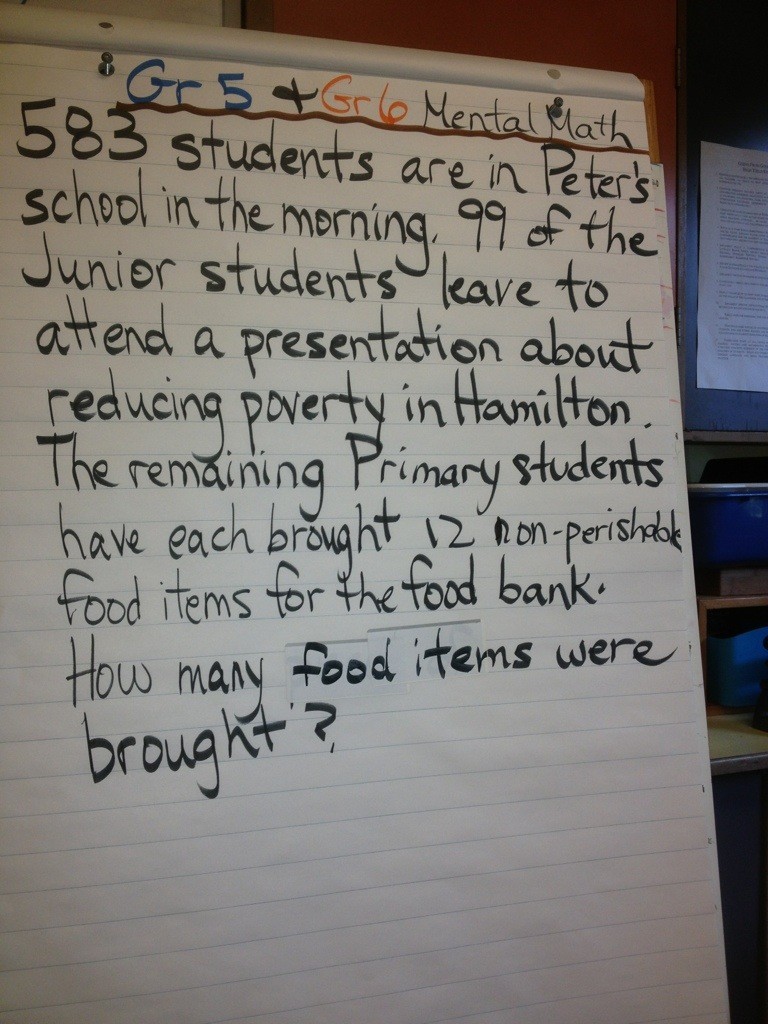 Gr 5 + Gr 6 Mental Math
583 students are in Peter's
school in the morning. 99 of the
Junior students leave to
attend a presentation about
reducing poverty in Hamilton.
The remaining Primary students
have each brought 12 non-perishable
food items for the food bank.
How many food items were
brought?